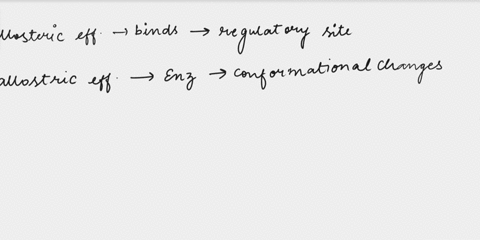 llosteric eff. → binds → regulatory site
allostric eff. → Enz → conformational changes